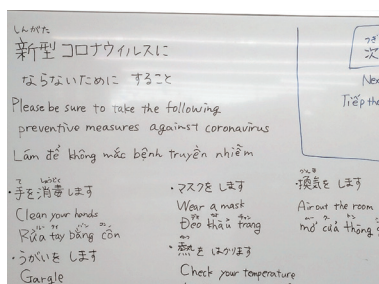 しんがた
新型コロナウイルスに
ならないために すること
Please be sure to take the following
preventive measures against coronavirus
Lám để không mắc bệnh truyền nhiễm
て しょうどく
・手を消毒します
Clean your hands
Rửa tay bằng cồn
・うがいを します
Gargle
・マスクを します
Wear a mask
Đeo khẩu trang
・熱を はかります
Check your temperature
・換気を します
Air out the room
mở cửa thông
つぎ
次
Nex
Tiếp the